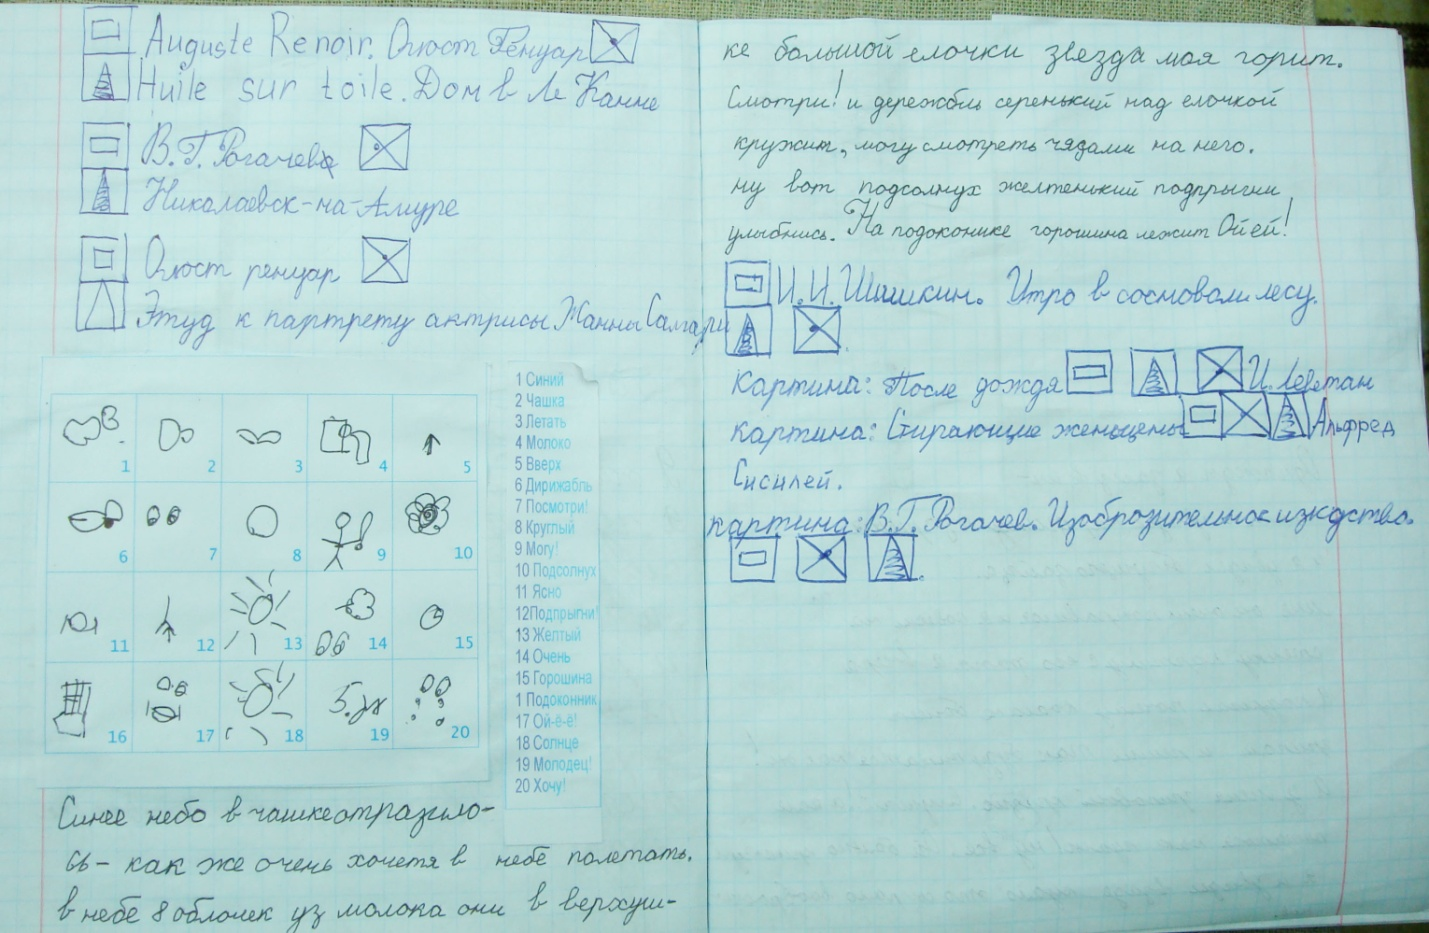 Auguste Renoir. Огюст Ренуар
Huile sur toile. Дом в Ле Канне
В.Г. Рогачев
Николаевск-на-Амуре
Огюст ренуар
Этуд к партрету актрисы Жанны Самари
1
2
3
4
5
6
7
8
9
10
11
12
13
14
15
16
17
18
19
20
1 Синий
2 Чашка
3 Летать
4 Молоко
5 Вверх
6 Дирижабль
7 Посмотри!
8 Круглый
9 Могу!
10 Подсолнух
11 Ясно
12Подпрыгни!
13 Желтый
14 Очень
15 Горошина
1 Подоконник
17 Ой-ё-ё!
18 Солнце
19 Молодец!
20 Хочу!
Синее небо в чашкеотразило-
сь- как же очень хочетя в небе полетать.
в небе 8 облочек уз молока они в верхуш-
ке большой елочки звезда моя горит.
Смотри! и дережобль серенький над елочкой
кружит, могу смотреть чядами на него.
ну вот подсолнух желтенький подпрыгни
улыбнись. На подоконике горошина лежит Ой ей!
И.И. Шишкин. Утро в сосновом лесу.
картина: После дождя И. Левитан
картина: Стирающие женщены Альфред
Сислей.
картина: В.Г. Рогачев. Изобразительное искуство.